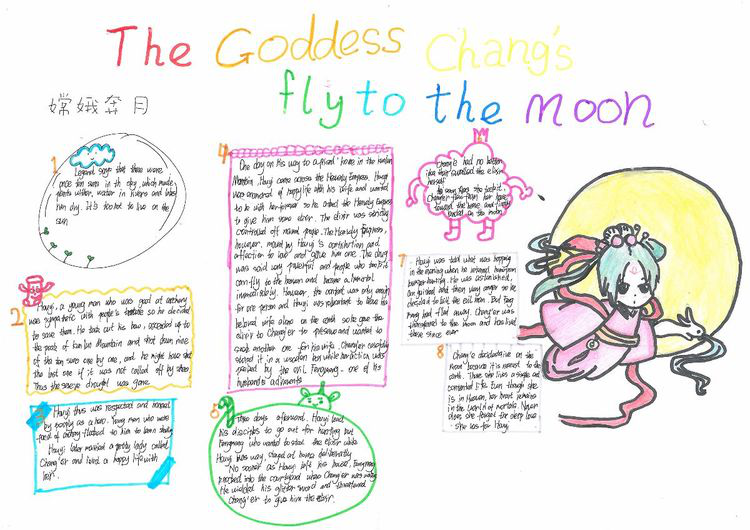 The Goddess Chang's
fly to the moon
嫦娥奔月
1
Legend says that there were
once ten suns in the sky, which made
plants wither, water in rivers and lakes
run dry. It's too hot to live on the
sun
2
Houyi, a young man who was good at archery
was sympathetic with people's so he decided
to save them. He took out his bow, ascended up to
the peak of Kunlun Mountain and shot down nine
of the ten suns one by one, and he might have shot
the last one if it was not called off by others
Thus the severe drought was gone
3
Houyi thus was respected and honored
by people as a hero. Many men who were
fond of archery flocked to him to learn study
Houyi later married a pretty lady called
Chang'er and lived a happy life with
her.
4
One day on his way to a friend' home in the Kunlun
Mountain, Houyi came across the Heavenly Empress. Houyi
was enamored of happy life with his wife and wanted
to be with her forever so he asked the Heavenly Empress
to give him some elixir. The elixir was strictly
controlled off mount people. The Heavenly Empress,
however, moved by Houyi's contribution and
affection to lady and gave him one. The drug
was said very powerful and people who took it
can fly to the heaven and become a immortal
immediately. However the content was only enough
for one person and Houyi was reluctant to leave his
beloved wife alone on the earth so he gave the
elixir to Chang'er to preserve and wanted to
seek another one for his wife. Chang'er carefully
stored it in a wooden box while her action was
spied by the evil Fengmeng - one of his
husband's adherents
5
Three days afterward. Houyi lead
his disciples to go out for hunting but
Fengmeng who wanted to steal the elixir while
Houyi was away, stayed at house deliberately
No sooner as Houyi left his house, Fengmeng
rushed into the courtyard when Chang'er was away
He wielded his glitter sword and threatened
Chang'er to give him the elixir.
Chang'e had no between
than that swallowed the elixir
herself
toward the heaven and finally
landed on the moon
7
Houyi was told what was happening
in the morning when he returned home from
hunger-hunting. He was astonished,
anguished and then very angry so he
decided to kill the evil man. But Feng
meng had fled away. Chang'er was
transferred to the moon and has lived
there since
8
Chang'e decided to live on the
moon because it is nearest to the
earth. There she lives a simple and
contented life. Even though she
is in Heaven, her heart remains
in the world of mortals. Never
does she forget the deep love
she has for Houyi